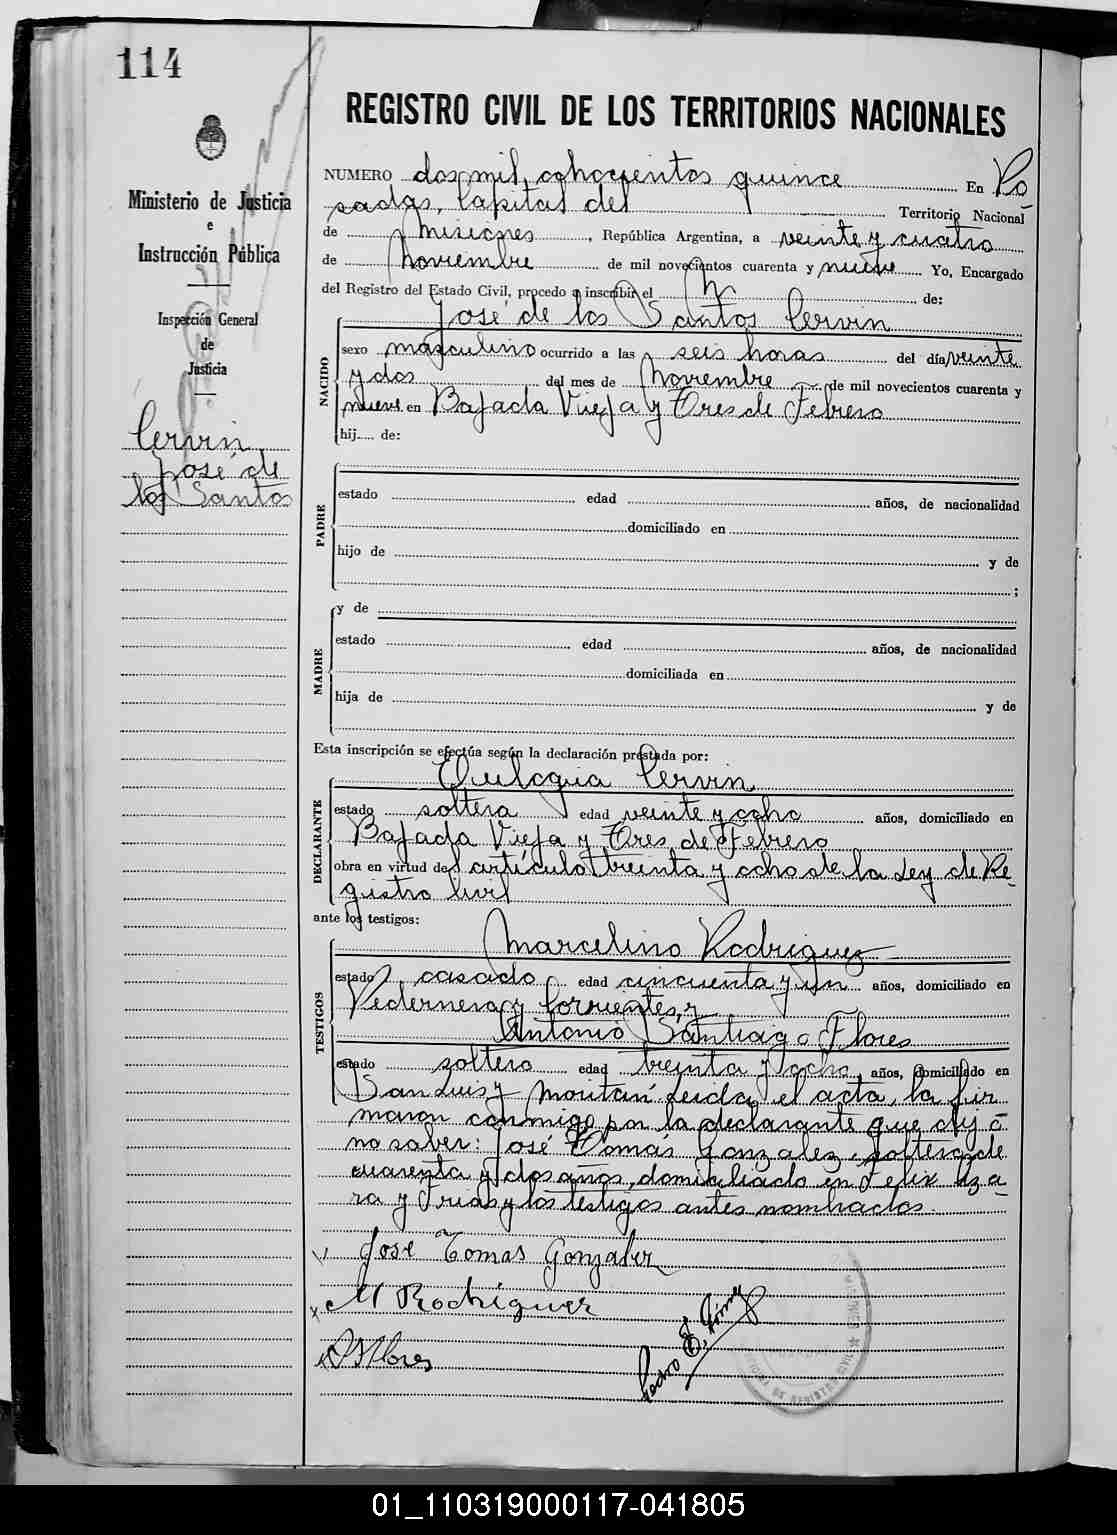 114
REGISTRO CIVIL DE LOS TERRITORIOS NACIONALES
Ministerio de Justicia
e
Instrucción Pública
Inspección General
de
Justicia
Cervin
José de
los Santos
NUMERO dos mil ochocientos quince En Po
sadas, Capital del Territorio Nacional
de Misiones, República Argentina, a veinte y cuatro
de Noviembre de mil novecientos cuarenta y nueve Yo, Encargado
del Registro del Estado Civil, procedo a inscribir el de:
José de los Santos Cervin
NACIDO
sexo masculino ocurrido a las seis horas del día veinte
y dos del mes de Noviembre de mil novecientos cuarenta y
nueve en Bajada Vieja y Tres de Febrero
hij.... de:
PADRE
estado edad años, de nacionalidad
domiciliado en
hijo de y de
;
MADRE
y de
estado edad años, de nacionalidad
domiciliada en
hija de y de
Esta inscripción se efectúa según la declaración prestada por:
Eulogia Cervin
DECLARANTE
estado soltera edad veinte y ocho años, domiciliado en
Bajada Vieja y Tres de Febrero
obra en virtud del artículo treinta y ocho de la Ley de Re-
gistro Civil
ante los testigos:
Marcelino Rodriguez
TESTIGOS
estado casado edad cincuenta y un años, domiciliado en
Pedernera y Corrientes, y
Antonio Santiago Flores
estado soltero edad treinta y ocho años, domiciliado en
San Luis y Moritán. Leida el acta, la fir
maron conmigo por la declarante que dijo
no saber: José Tomás Gonzalez, soltero, de
cuarenta y dos años, domiciliado en Felix Aza
ra y Frias y los testigos antes nombrados.
José Tomas Gonzalez
M Rodriguez
A S Flores
Pedro E. Gómez
01_110319000117-041805